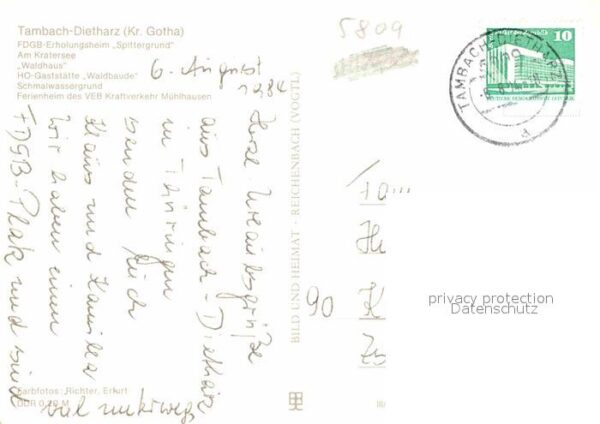 Tambach-Dietharz (Kr. Gotha)
FDGB-Erholungsheim „Spittergrund"
Am Kratersee
„Waldhaus"
HO-Gaststätte „Waldbaude"
Schmalwassergrund
Ferienheim des VEB Kraftverkehr Mühlhausen
5809
10
TAMBACH-DIETHARZ
DEUTSCHE DEMOKRATISCHE REPUBLIK
6. August
1984
Herzl. Urlaubsgrüße
aus Tambach-Dietharz
in Thüringen
senden Euch
Klaus und Familie
Wir haben einen
FDGB-Platz und sind
viel unterwegs
BILD UND HEIMAT · REICHENBACH (VOGTL)
90
privacy protection
Datenschutz
Farbfotos: Richter, Erfurt
DDR 0,20 M